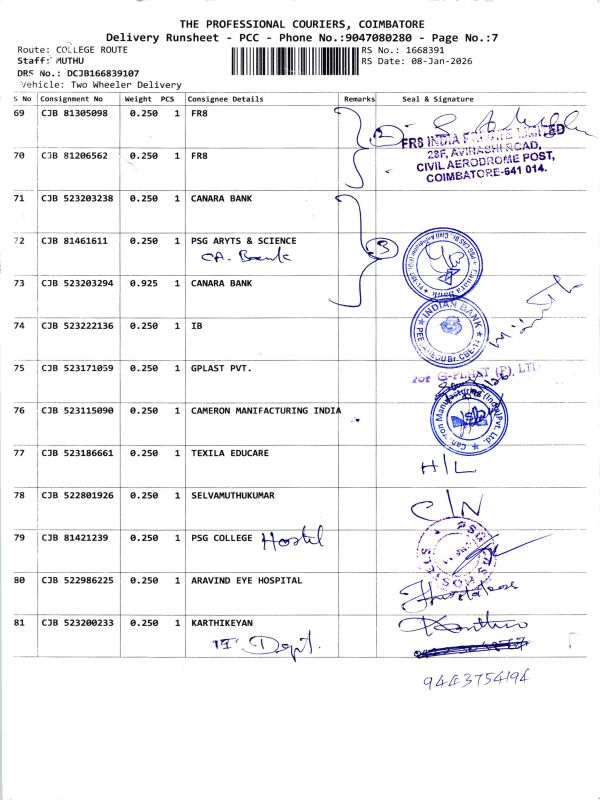 THE PROFESSIONAL COURIERS, COIMBATORE
Delivery Runsheet - PCC - Phone No.:9047080280 - Page No.:7
Route: COLLEGE ROUTE RS No.: 1668391
Staff: MUTHU RS Date: 08-Jan-2026
DRS No.: DCJB166839107
Vehicle: Two Wheeler Delivery
S No Consignment No Weight PCS Consignee Details Remarks Seal & Signature
69 CJB 81305098 0.250 1 FR8
2
FR8 INDIA PRIVATE LIMITED
28F, AVINASHI ROAD,
CIVIL AERODROME POST,
COIMBATORE-641 014.
70 CJB 81206562 0.250 1 FR8
71 CJB 523203238 0.250 1 CANARA BANK
72 CJB 81461611 0.250 1 PSG ARYTS & SCIENCE
CA. Bank
3
Canara Bank
73 CJB 523203294 0.925 1 CANARA BANK
74 CJB 523222136 0.250 1 IB
INDIAN BANK
75 CJB 523171059 0.250 1 GPLAST PVT.
for G-PLAST (P). LTD
76 CJB 523115090 0.250 1 CAMERON MANIFACTURING INDIA
Cameron Manufacturing (India) Pvt. Ltd.
77 CJB 523186661 0.250 1 TEXILA EDUCARE
H/L
78 CJB 522801926 0.250 1 SELVAMUTHUKUMAR
C/N
79 CJB 81421239 1 PSG COLLEGE Hostel
80 CJB 522986225 0.250 1 ARAVIND EYE HOSPITAL
81 CJB 523200233 0.250 1 KARTHIKEYAN
IT Dept.
9443754194